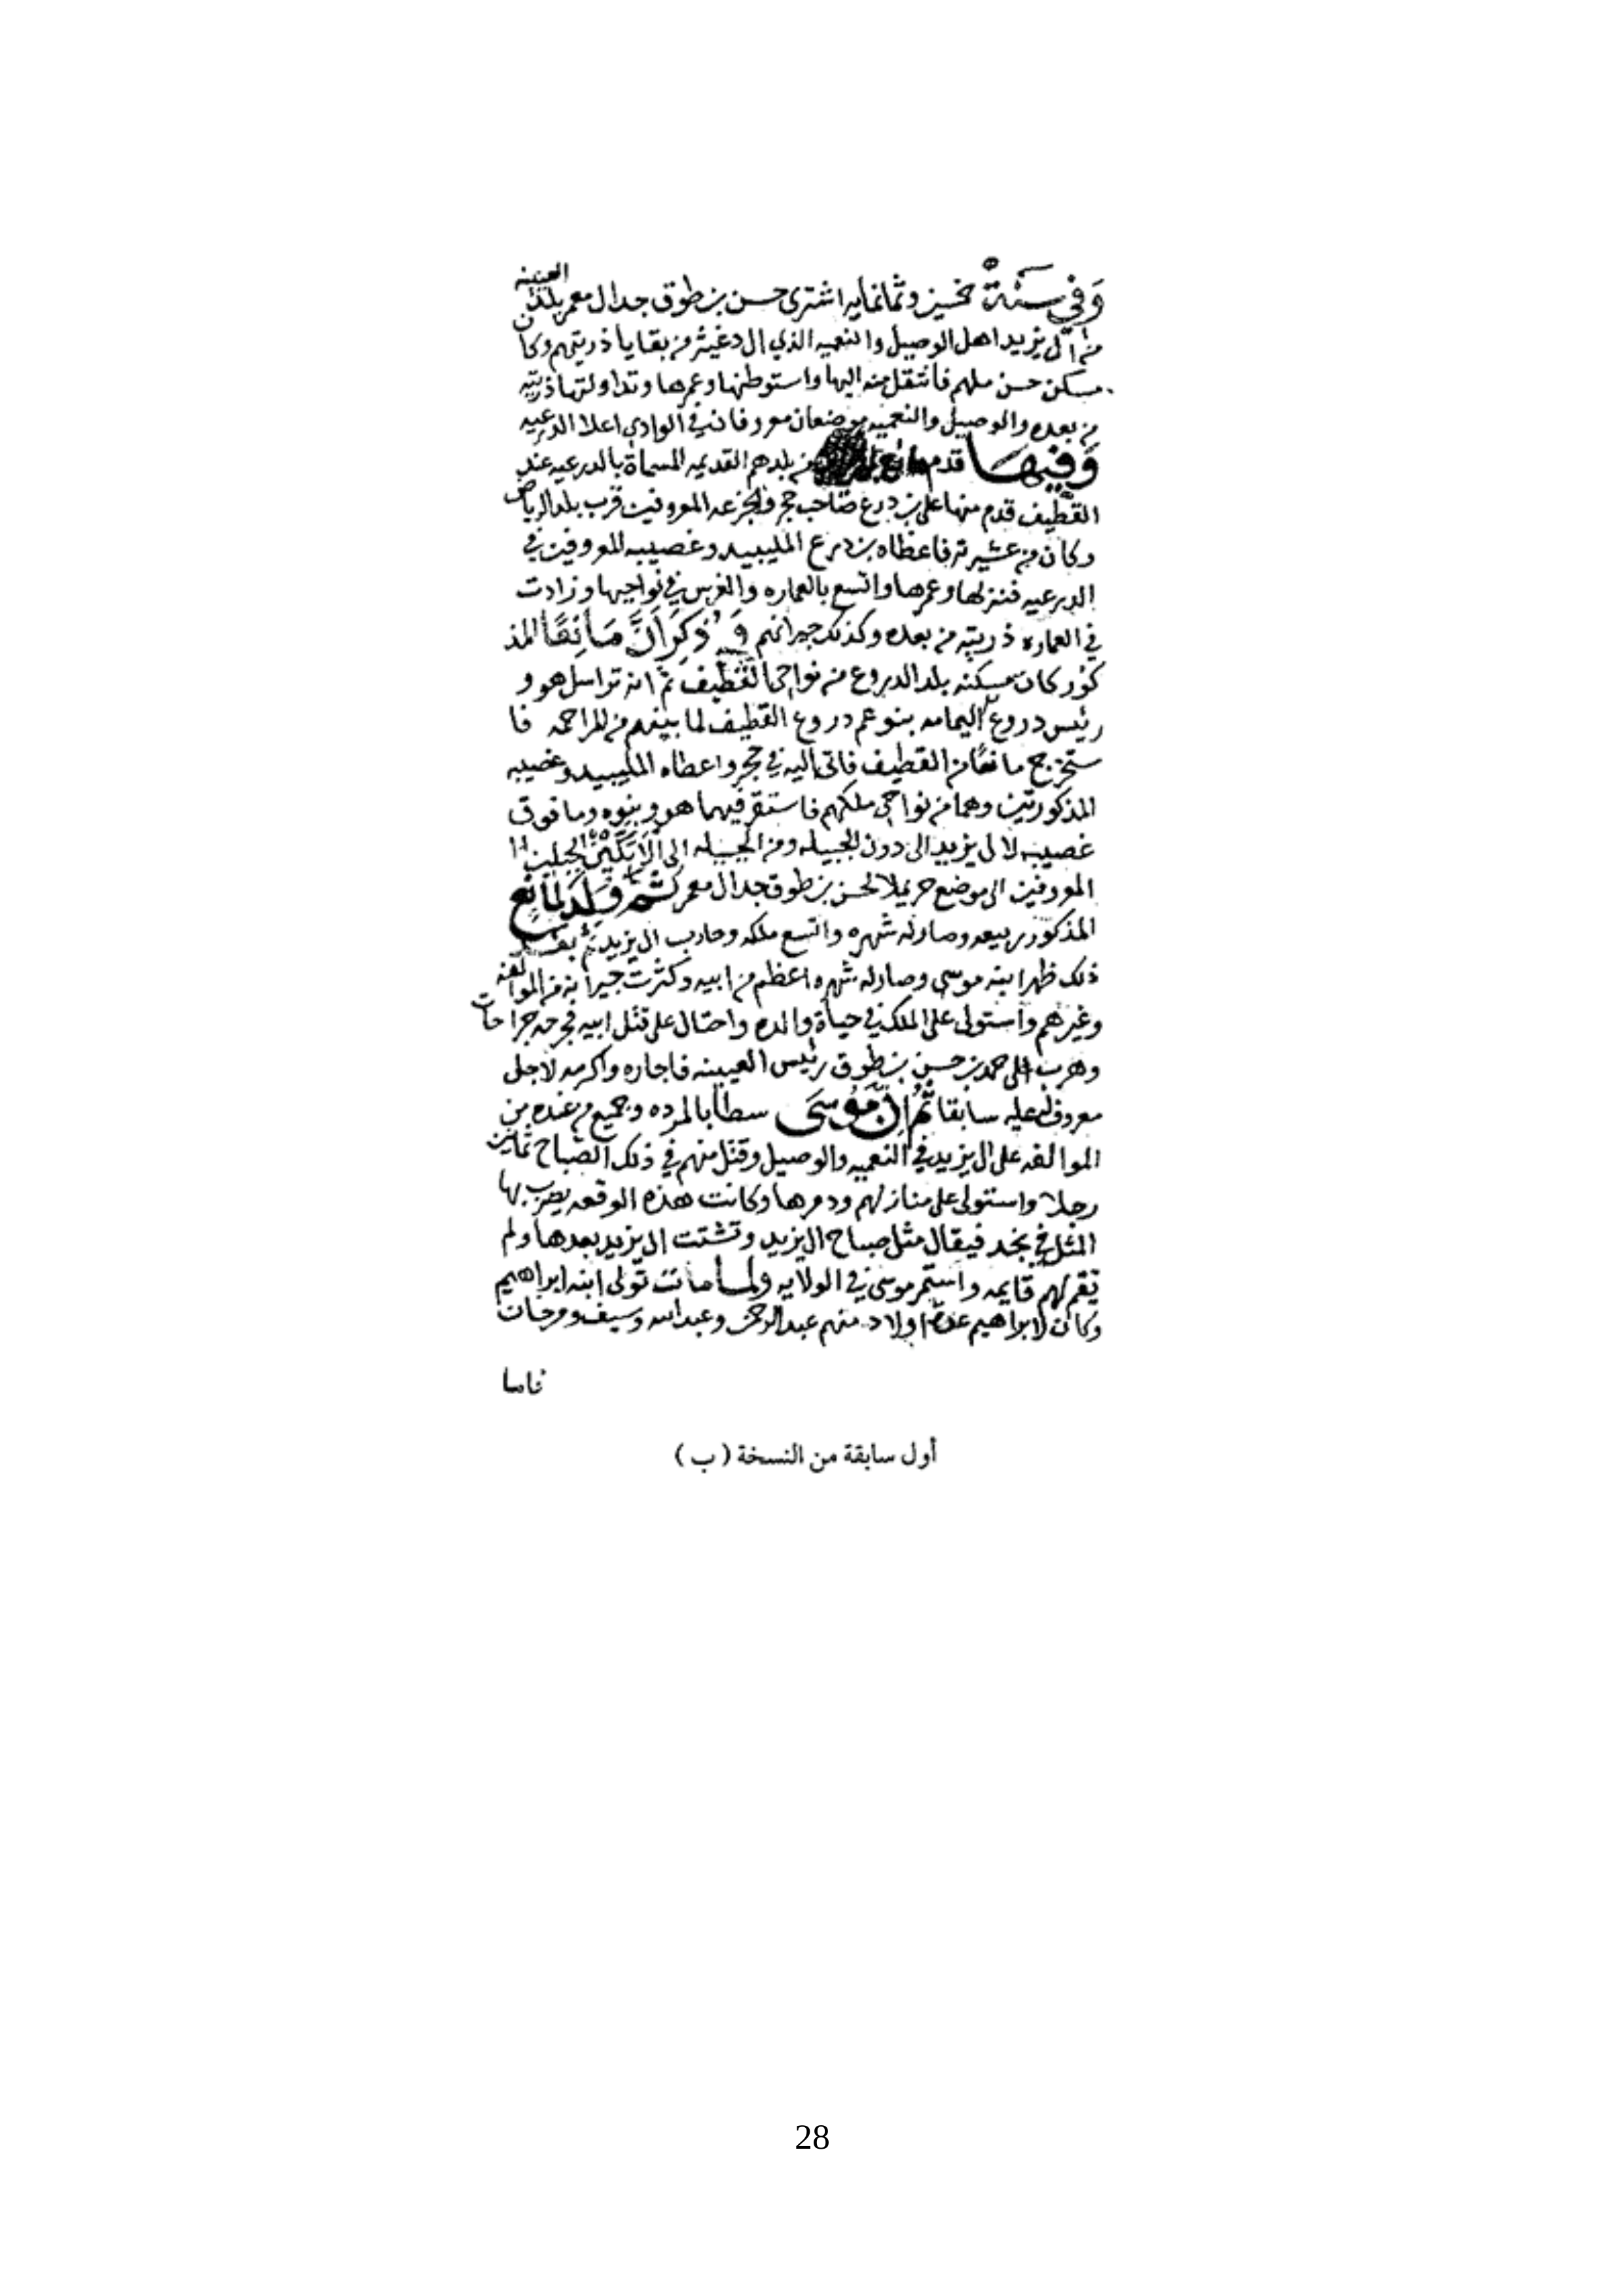 وَفي سَنَة خمسين وثمانمايه اشترى حسن بن طوق جد ال معمر بلد العيينه
من آل يزيد اهل الوصيل والنعميه الذي ال دغيثر من بقايا ذريتهم وكان
مسكن حسن ملهم فانتقل منه اليها واستوطنها وعمرها وتداولتها ذريته
من بعده والوصيل والنعميه موضعان معروفان في الوادي اعلا الدرعيه
وَفيهَا قدم مانع من بلدهم القديمه المسماة بالدرعيه عند
القطيف قدم منها على بن درع صاحب حجر والجزعه المعروفين قرب بلد الرياض
وكان من عشيرته فاعطاه بن درع المليبيد وغصيبه المعروفين في
الدرعيه فنزلها وعمرها واتسع بالعماره والغرس في نواحيها وزادت
في العماره ذريته من بعده وكذلك جيرانهم وَذكر اَنَّ مَانِعًا المذ
كور كان مسكنه بلد الدروع من نواحي القطيف ثم انه تراسل هو و
رئيس دروع اليمامه بنو عم دروع القطيف لما بينهم من المراحمه فا
ستخرج مانعًا من القطيف فاتى اليه في حجر واعطاه المليبيد وغصيبه
المذكورتين وهما من نواحي ملكهم فاستقر فيهما هو وبنوه وما فوق
غصيبه لال يزيد الى دون الجبيله ومن الجبيله الى الابكين الجبلين
المعروفين الى موضع حريملا لحسن بن طوق جد ال معمر ثم وَلد لمانع
المذكور ربيعه وصار له شهره واتسع ملكه وحارب ال يزيد ثم بعد
ذلك ظهر ابنه موسى وصار له شهره اعظم من ابيه وكثرت جيرانه من الموالفه
وغيرهم واستولى على الملك في حياة والده واحتال على قتل ابيه فجرحه جراحات
وهرب الى حمد بن حسن بن طوق رئيس العيينه فاجاره واكرمه لاجل
معروف له عليه سابقا ثُم اِنَّ مُوسَى سطا بالمرده وجميع من عنده من
الموالفه على ال يزيد في النعميه والوصيل وقتل منهم في ذلك الصباح ثمانين
رجلا واستولى على منازلهم ودمرها وكانت هذه الوقعه يضرب بها
المثل في نجد فيقال مثل صباح ال يزيد وتشتت ال يزيد بعدها ولم
تقم لهم قايمه واستمر موسى في الولايه ولما مات تولى ابنه ابراهيم
وكان لابراهيم عدة اولاد منهم عبدالرحمن وعبدالله وسيف ومرخان
فاما
أول سابقة من النسخة ( ب )
28